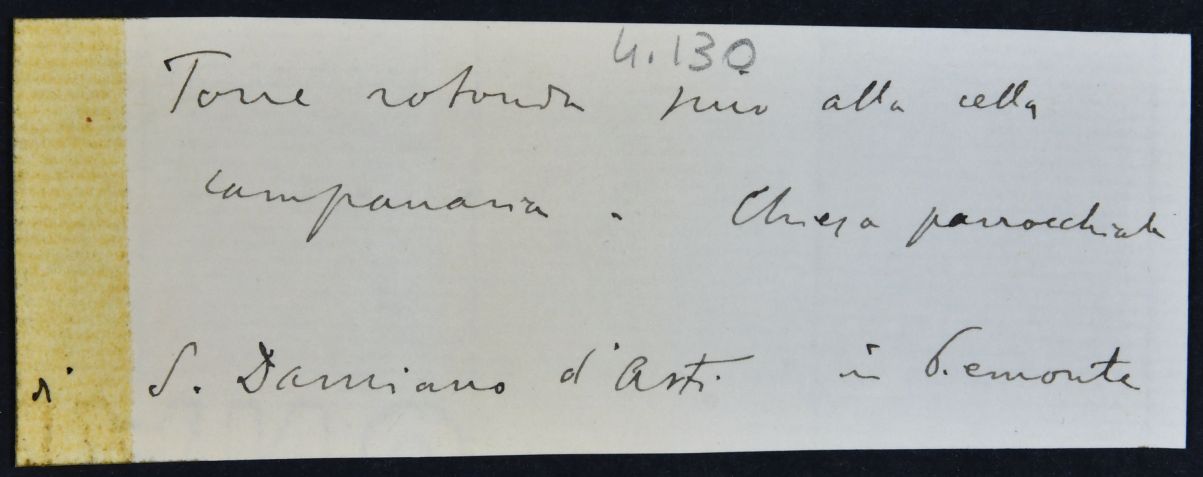 4.130
Torre rotonda fino alla cella
campanaria. Chiesa parrocchiale
di S. Damiano d'Asti in Piemonte